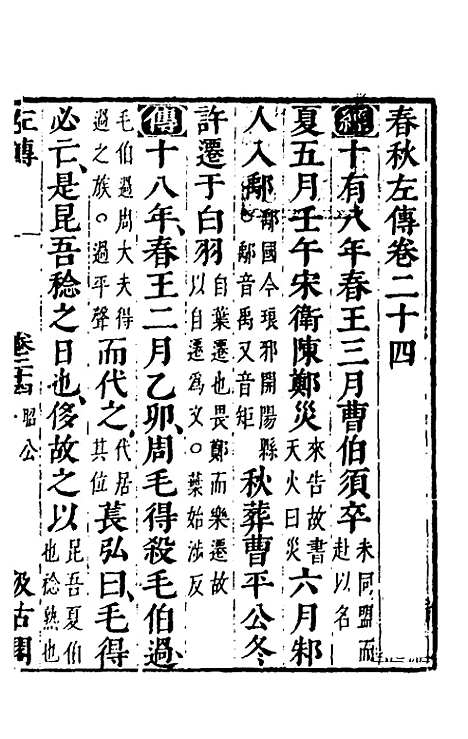 春秋左傳卷二十四
經十有八年春王三月曹伯須卒未同盟而赴以名
夏五月壬午宋衛陳鄭災來告故書天火曰災六月邾
人入鄅鄅國今琅邪開陽縣鄅音禹又音矩秋葬曹平公冬
許遷于白羽自葉遷也畏鄭而樂遷故以自遷爲文○葉始涉反
傳十八年春王二月乙卯周毛得殺毛伯過
毛伯過周大夫得過之族○過平聲而代之代居其位萇弘曰毛得
必亡是昆吾稔之日也侈故之以昆吾夏伯也稔熟也
左傳 卷二十四 昭公 一 汲古閣